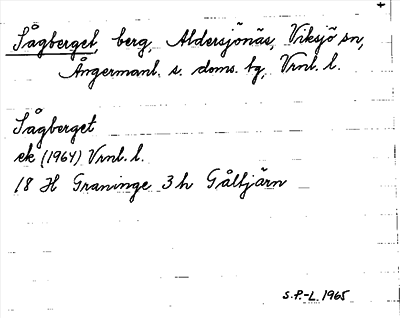 Sågberget, berg, Aldersjönäs, Viksjö sn,
Ångermanl. s. doms. tg, Vrnl. l.
Sågberget
ek (1964) Vrnl. l.
18 H Graninge 3 h Gåltjärn
S.P.-L. 1965